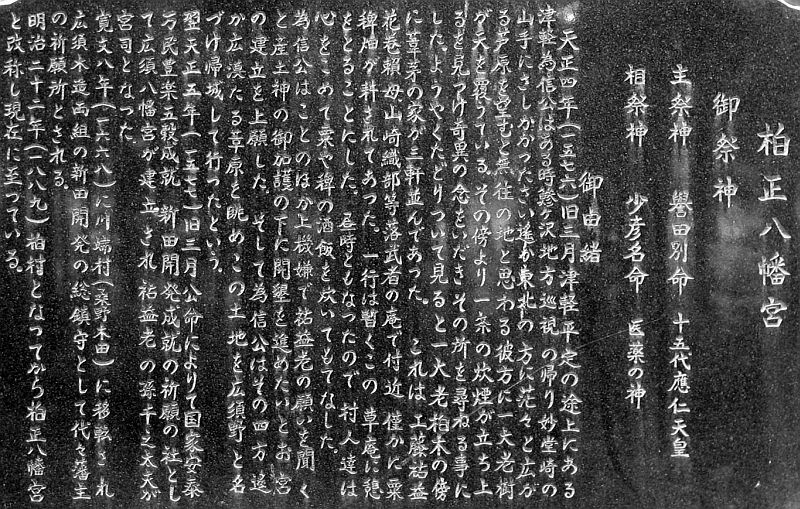 柏正八幡宮
御祭神
主祭神 譽田別命 十五代應仁天皇
相祭神 少彦名命 医薬の神
御由緒
◉天正四年(一五七六)旧三月津軽平定の途上にある
津軽為信公はある時鯵ヶ沢地方巡視の帰り妙堂崎の
山手にさしかかったさい遙か東北の方に茫々と広が
る芦原を望むと無住の地と思わる彼方に一大老樹
が天を覆うている。その傍より一条の炊煙が立ち上
るを見つけ奇異の念をいだきその所を尋ねる事に
した。ようやくたどりついて見ると一大老柏木の傍
に葦茅の家が三軒並んであった。これは工藤祐益
花巻頼母山崎織部等落武者の庵で付近僅かに粟
稗畑が耕されてあった。一行は暫くこの草庵に憩
をとることにした。昼時ともなったので村人達は
心をこめて粟や稗の酒飯を炊いてもてなした。
為信公はことのほか上機嫌で祐益老の願いを聞く
と産土神の御加護の下に開墾を進めたいとお宮
の建立を上願した。そして為信公はその四方遙
か広漠たる葦原を眺めこの土地を広須野と名
づけ帰城して行ったという。
翌天正五年(一五七七)旧三月公命によりて国家安泰
万民豊楽五穀成就新田開発成就の祈願の社とし
て広須八幡宮が建立され祐益老の孫千之太夫が
宮司となった。
寛文八年(一六六八)に川端村(桑野木田)に移転され
広須木造両組の新田開発の総鎮守として代々藩主
の祈願所とされる。
明治二十二年(一八八九)柏村となってから柏正八幡宮
と改称し現在に至っている。